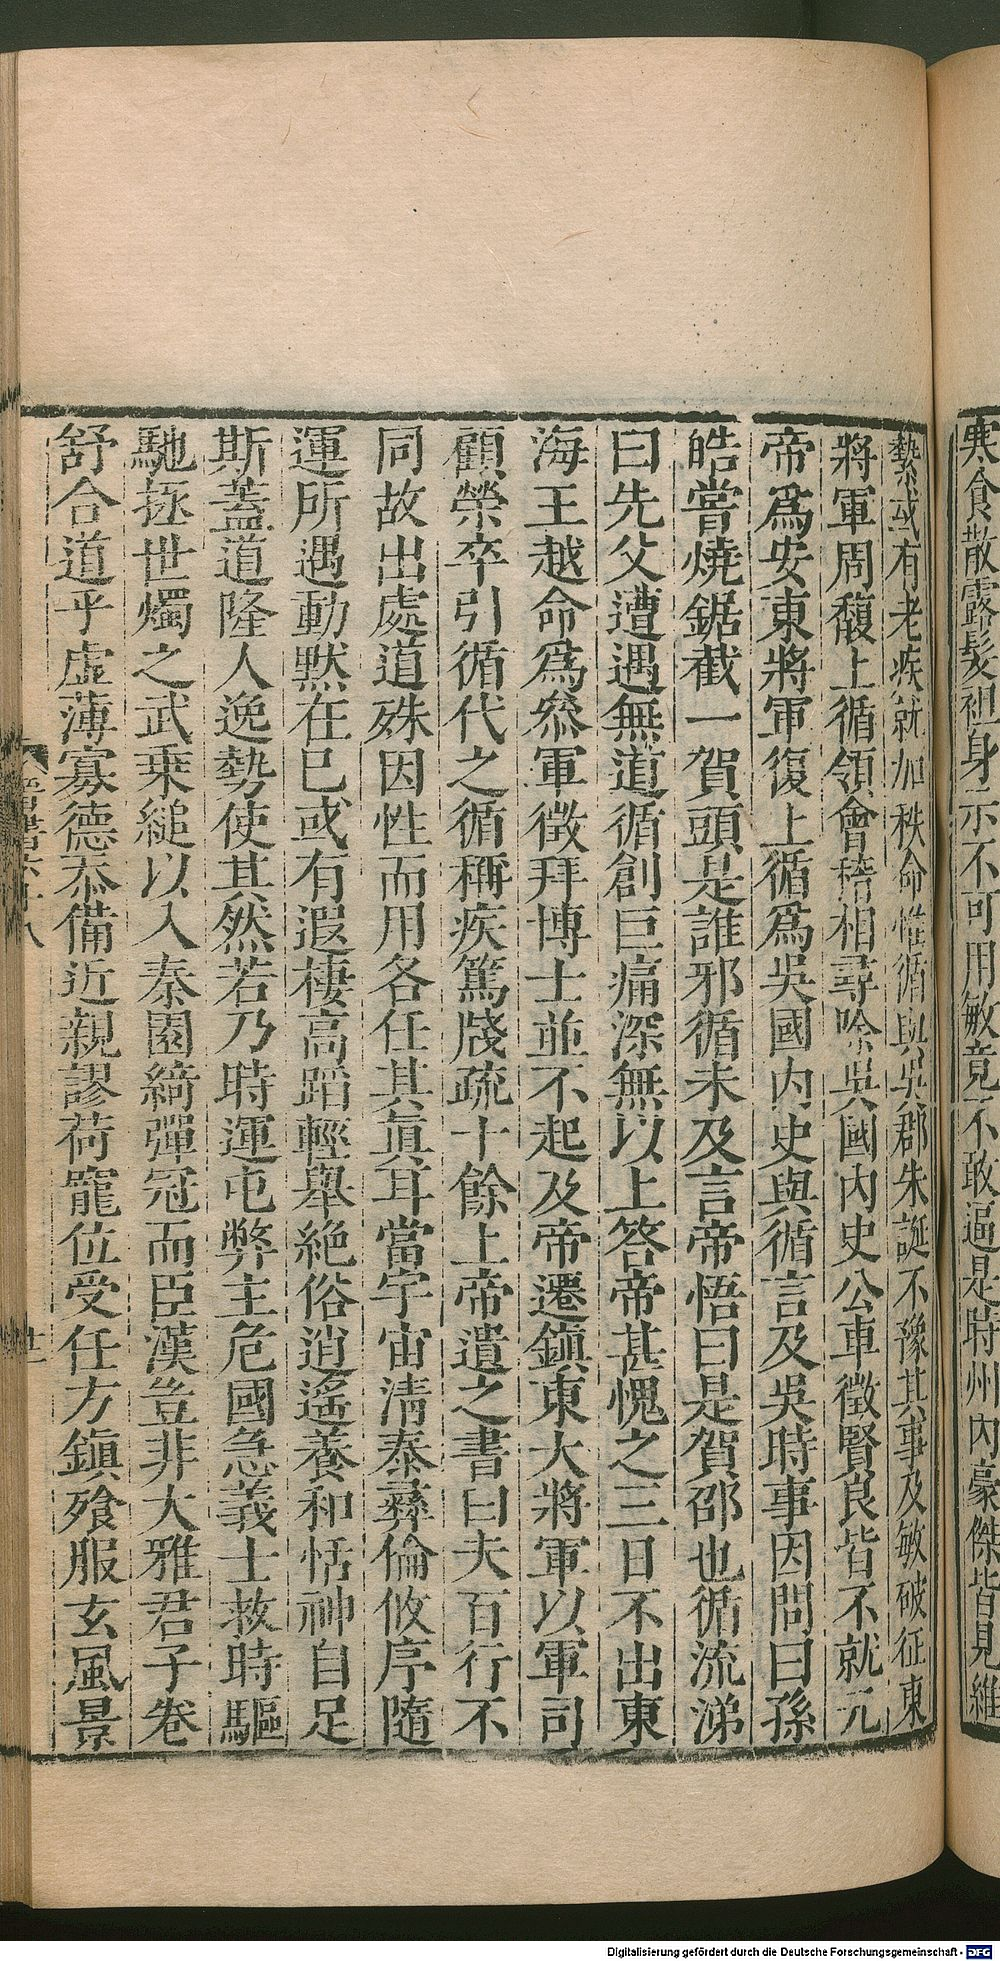 寒食散露髮袒身示不可用敏竟不敢逼是時州內豪傑皆見維
縶或有老疾就加秩命惟循與吳郡朱誕不豫其事及敏破征東
將軍周馥上循領會稽相尋除吳國內史公車徵賢良皆不就元
帝爲安東將軍復上循爲吳國內史與循言及吳時事因問曰孫
皓嘗燒鋸截一賀頭是誰邪循未及言帝悟曰是賀邵也循流涕
曰先父遭遇無道循創巨痛深無以上答帝甚愧之三日不出東
海王越命爲叅軍徵拜博士並不起及帝遷鎮東大將軍以軍司
顧榮卒引循代之循稱疾篤牋疏十餘上帝遺之書曰夫百行不
同故出處道殊因性而用各任其眞耳當宇宙清泰彛倫攸序隨
運所遇動默在巳或有遐棲高蹈輕舉絶俗逍遙養和恬神自足
斯蓋道隆人逸勢使其然若乃時運屯弊主危國急義士救時驅
馳拯世燭之武乗縋以入秦園綺彈冠而臣漢豈非大雅君子卷
舒合道乎虛薄寡德忝備近親謬荷寵位受任方鎮飱服玄風景
晉書六十八
廿一
Digitalisierung gefördert durch die Deutsche Forschungsgemeinschaft - DFG